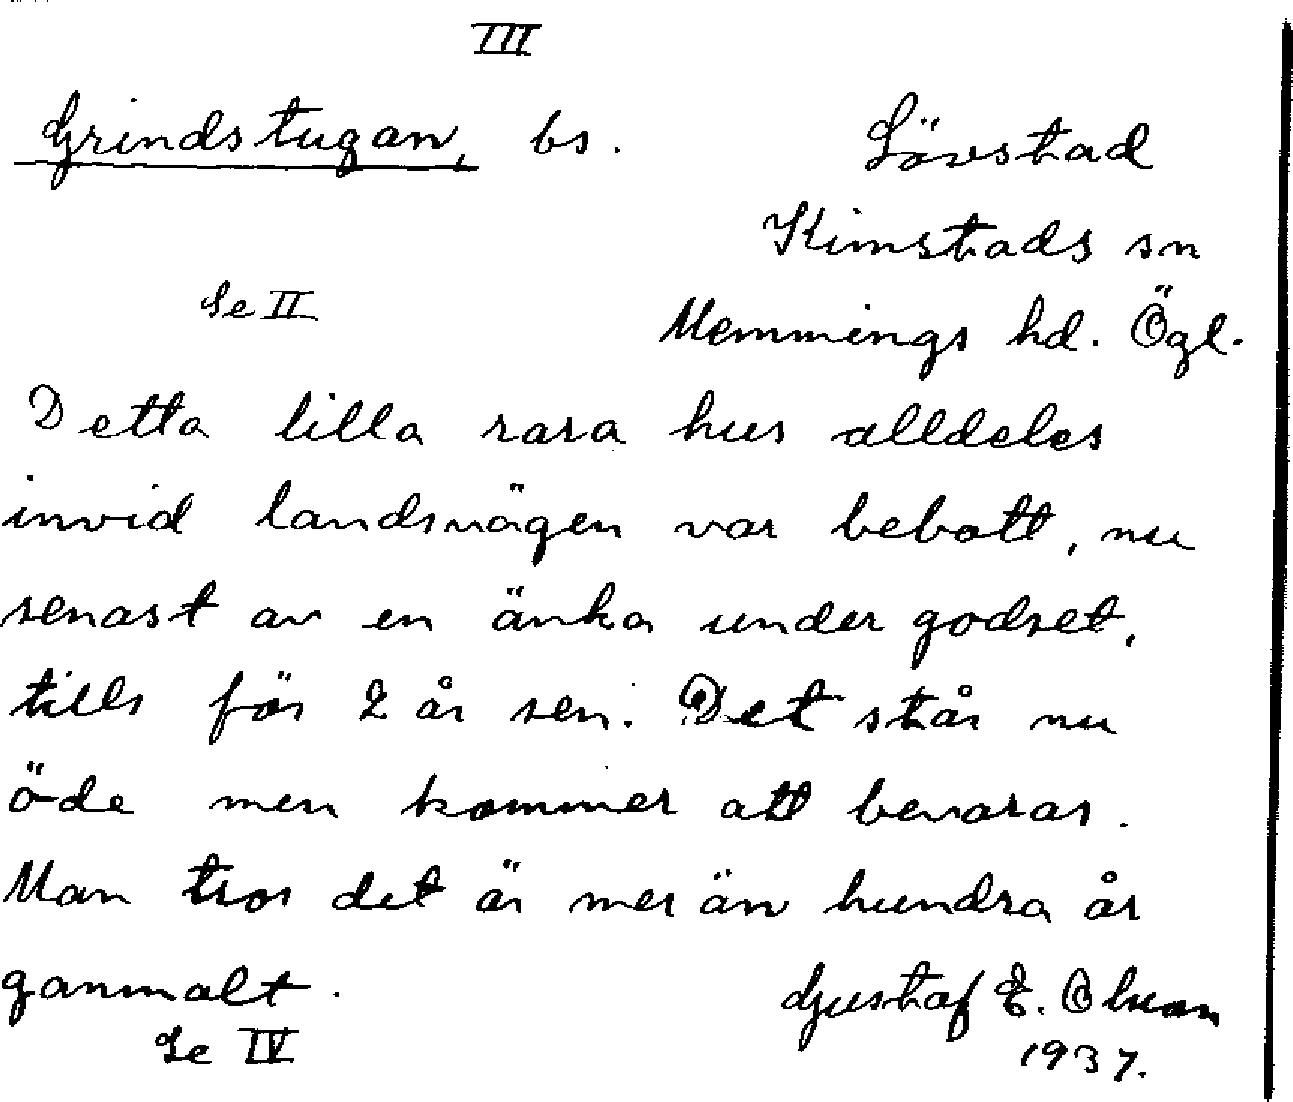 III
Grindstugan, bs. Lövstad
Kimstads sn
Se II
Memmings hd. Ögl.
Detta lilla rara hus alldeles
invid landsvägen var bebott, nu
senast av en änka under godset,
tills för 2 år sen. Det står nu
öde men kommer att bevaras.
Man tror det är mer än hundra år
gammalt. Gustaf E. Olsson
Se IV 1937.